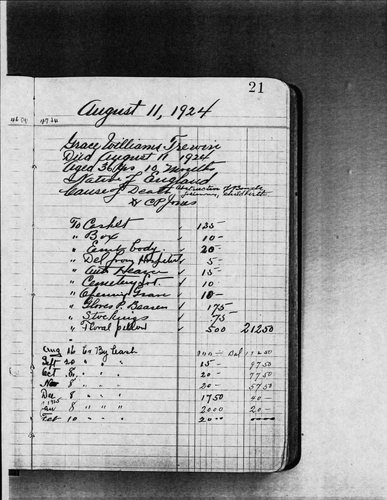 21
August 11, 1924
Grace Williams Trevin
Died August 11, 1924
Aged 36 yrs, 10 Months
Native of England
Cause of Death Obstruction of Bowels
Childbirth
Dr C P Jones
To Casket 125 -
" Box 10 -
" Emb body 20 -
" Del from Hospital 5 -
" Auto Hearse 15 -
" Cemetery Lot 10
" Opening Grave 10 -
" Gloves P. Bearers 1 75
" Stockings 75
" Floral pillow 5 00 212 50
Aug 16 By Cash
Sept 20 " " 15 - 97 50
Oct 8 " " 20 - 77 50
Nov 8 " " 20 - 57 50
Dec 8 " " 17 50 40 -
1925
Jan 8 " " 20 00 20 -
Feb 10 " " 20 -